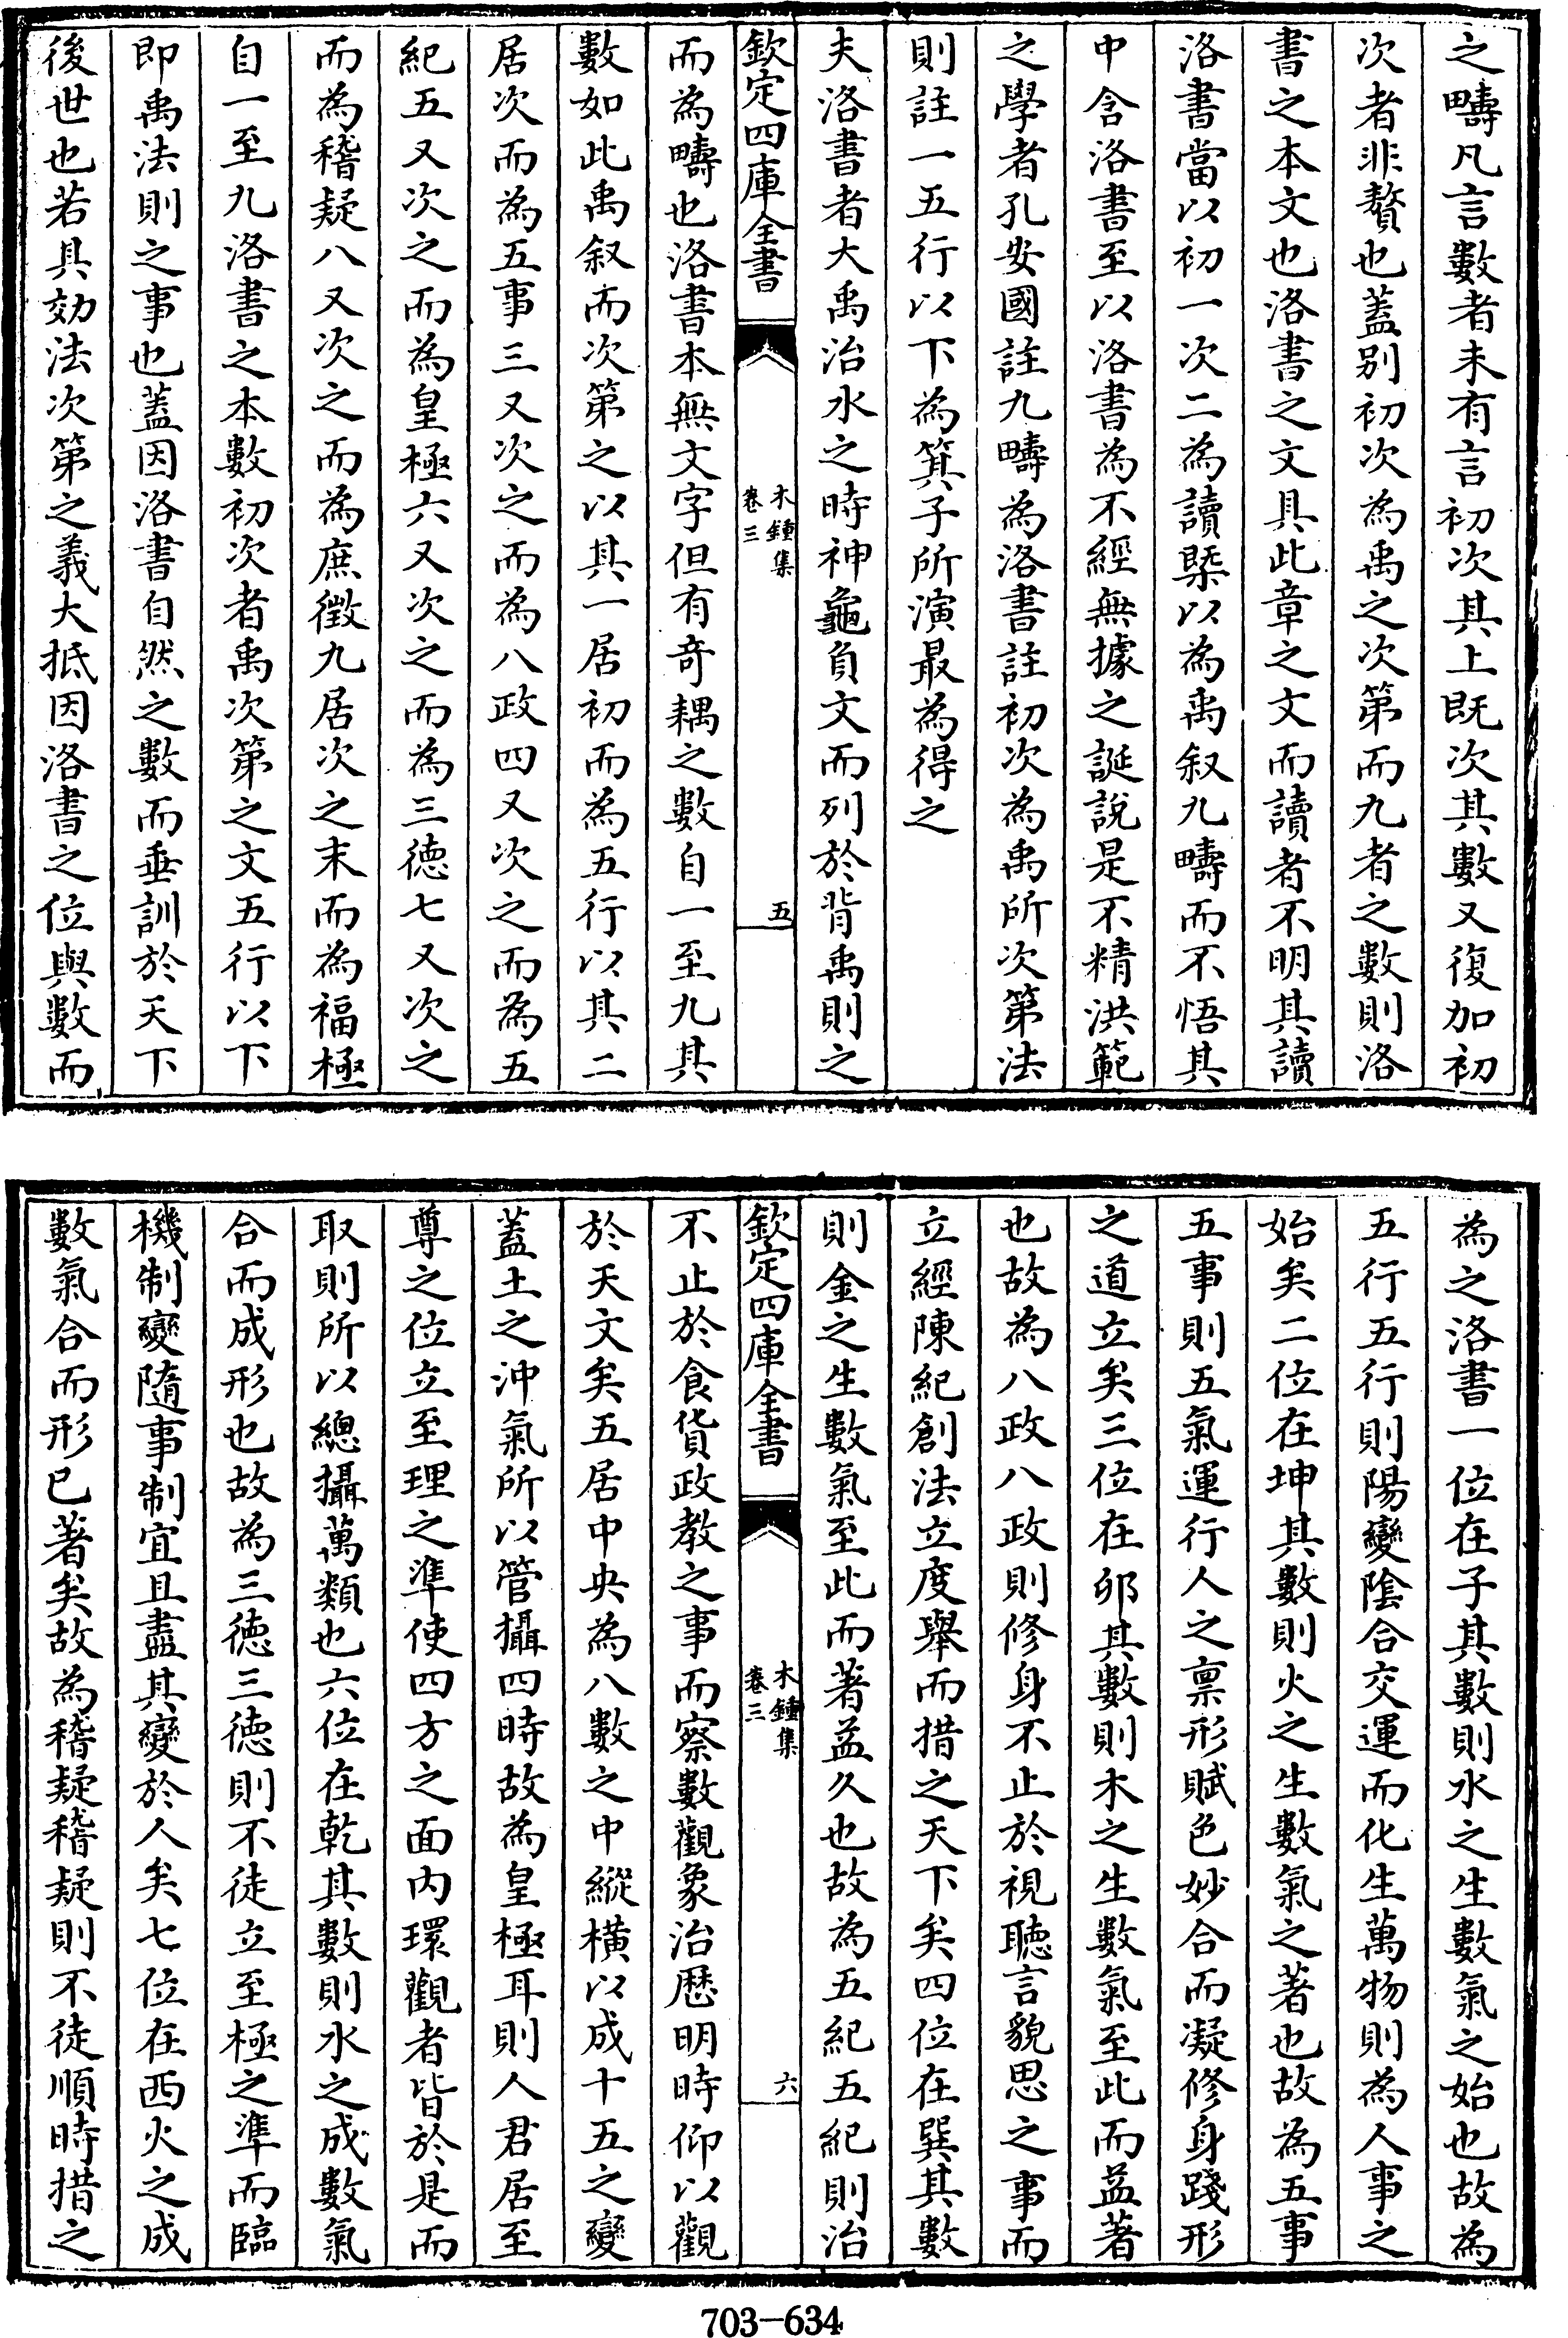 之疇凡言數者未有言初次其上既次其數又復加初
次者非贅也蓋别初次為禹之次第而九者之數則洛
書之本文也洛書之文具此章之文而讀者不明其讀
洛書當以初一次二為讀槩以為禹叙九疇而不悟其
中含洛書至以洛書為不經無據之誕說是不精洪範
之學者孔安國註九疇為洛書註初次為禹所次第法
則註一五行以下為箕子所演最為得之
夫洛書者大禹治水之時神龜負文而列於背禹則之
欽定四庫全書
木鍾集
卷三
五
而為疇也洛書本無文字但有奇耦之數自一至九其
數如此禹叙而次第之以其一居初而為五行以其二
居次而為五事三又次之而為八政四又次之而為五
紀五又次之而為皇極六又次之而為三徳七又次之
而為稽疑八又次之而為庶徵九居次之末而為福極
自一至九洛書之本數初次者禹次第之文五行以下
即禹法則之事也蓋因洛書自然之數而垂訓於天下
後世也若具効法次第之義大抵因洛書之位與數而
為之洛書一位在子其數則水之生數氣之始也故為
五行五行則陽變陰合交運而化生萬物則為人事之
始矣二位在坤其數則火之生數氣之著也故為五事
五事則五氣運行人之禀形賦色妙合而凝修身踐形
之道立矣三位在卯其數則木之生數氣至此而益著
也故為八政八政則修身不止於視聽言貌思之事而
立經陳紀創法立度舉而措之天下矣四位在巽其數
則金之生數氣至此而著益久也故為五紀五紀則治
欽定四庫全書
木鍾集
卷三
六
不止於食貨政教之事而察數觀象治厯明時仰以觀
於天文矣五居中央為八數之中縱橫以成十五之變
蓋土之沖氣所以管攝四時故為皇極耳則人君居至
尊之位立至理之準使四方之面内環觀者皆於是而
取則所以總攝萬類也六位在乾其數則水之成數氣
合而成形也故為三徳三徳則不徒立至極之準而臨
機制變隨事制宜且盡其變於人矣七位在西火之成
數氣合而形已著矣故為稽疑稽疑則不徒順時措之
703-634